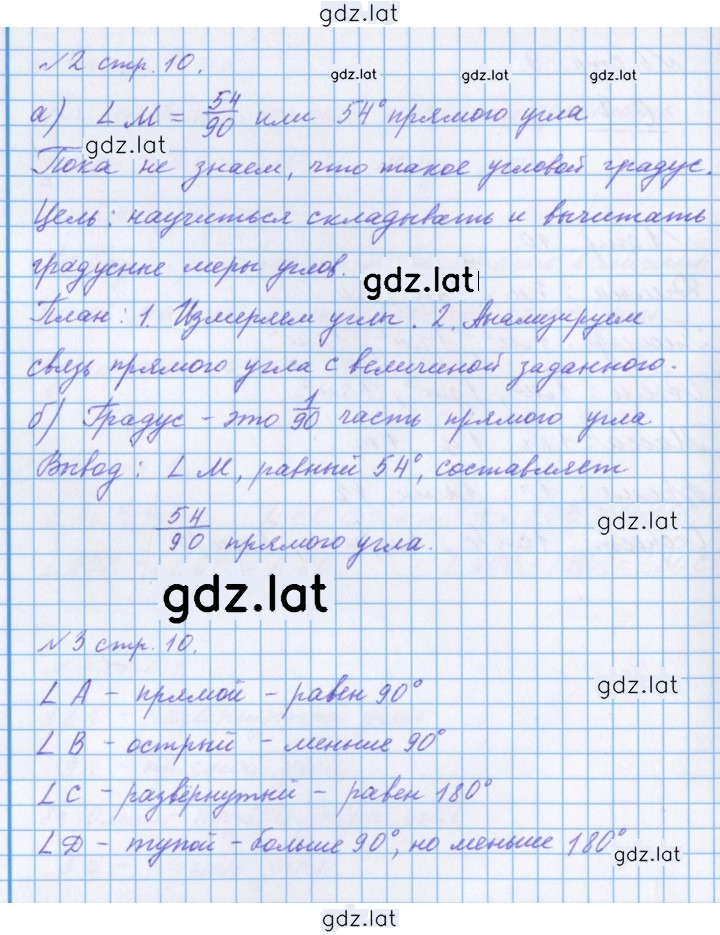 gdz.lat
№2 стр. 10.
gdz.lat gdz.lat gdz.lat
а) ∠ M = 54/90 или 54° прямого угла
gdz.lat
Пока не знаем, что такое угловой градус.
Цель: научиться складывать и вычитать
градусные меры углов.
gdz.lat
План: 1. Измеряем углы. 2. Анализируем
связь прямого угла с величиной заданного.
б) Градус - это 1/90 часть прямого угла
Вывод: ∠ M, равный 54°, составляет
gdz.lat
54/90 прямого угла.
gdz.lat
№3 стр. 10.
gdz.lat
∠ A - прямой - равен 90°
∠ B - острый - меньше 90°
∠ C - развёрнутый - равен 180°
∠ D - тупой - больше 90°, но меньше 180°
gdz.lat
gdz.lat